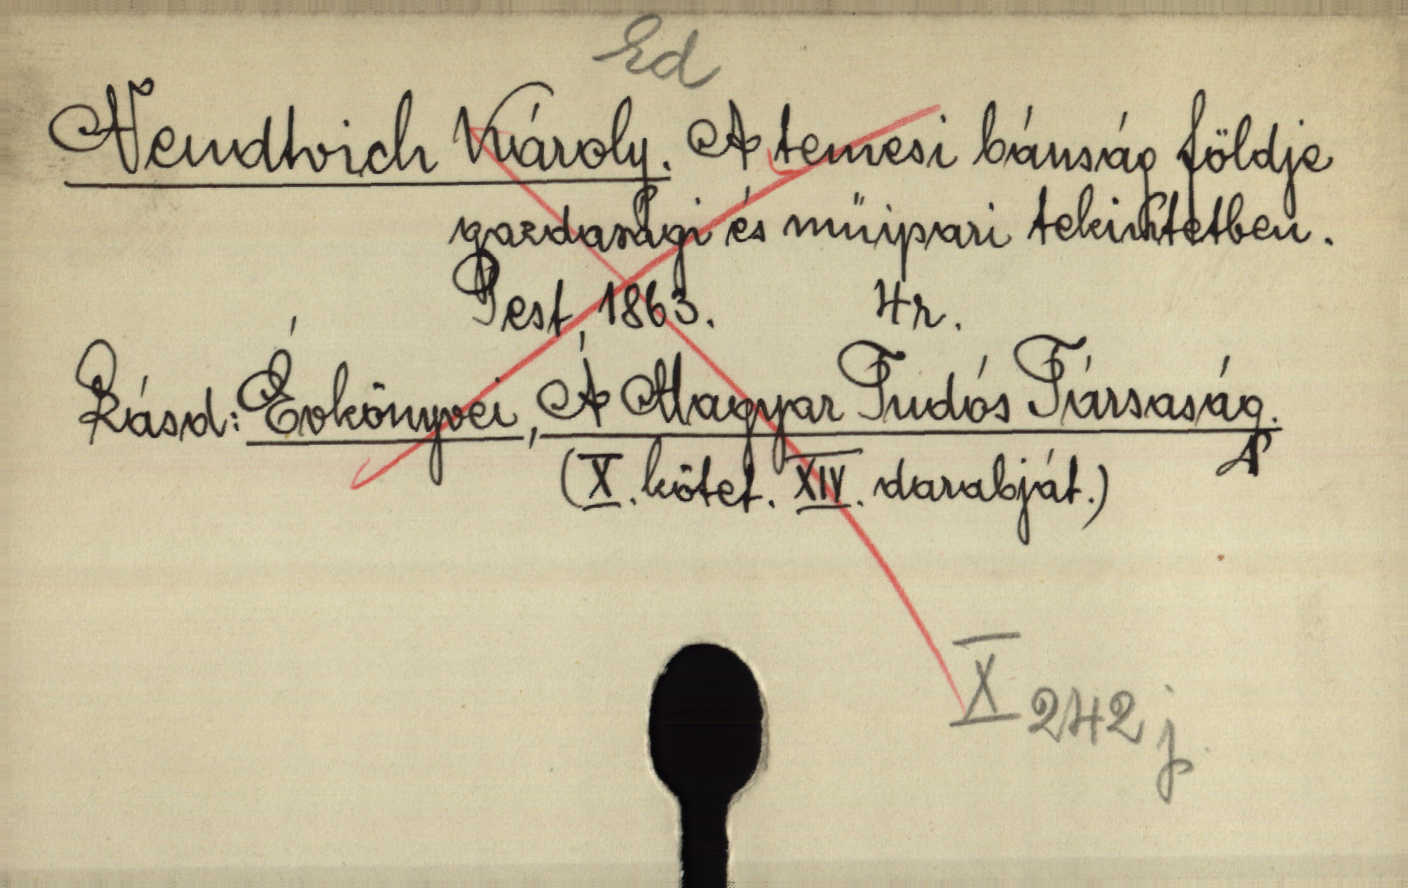 Ed
Nendtvich Károly. A temesi bánság földje
gazdasági és műipari tekintetben.
Pest, 1863. 4r.
Lásd: Évkönyvei, A Magyar Tudós Társaság.
(X. kötet. XIV. darabját.)
X 242 j